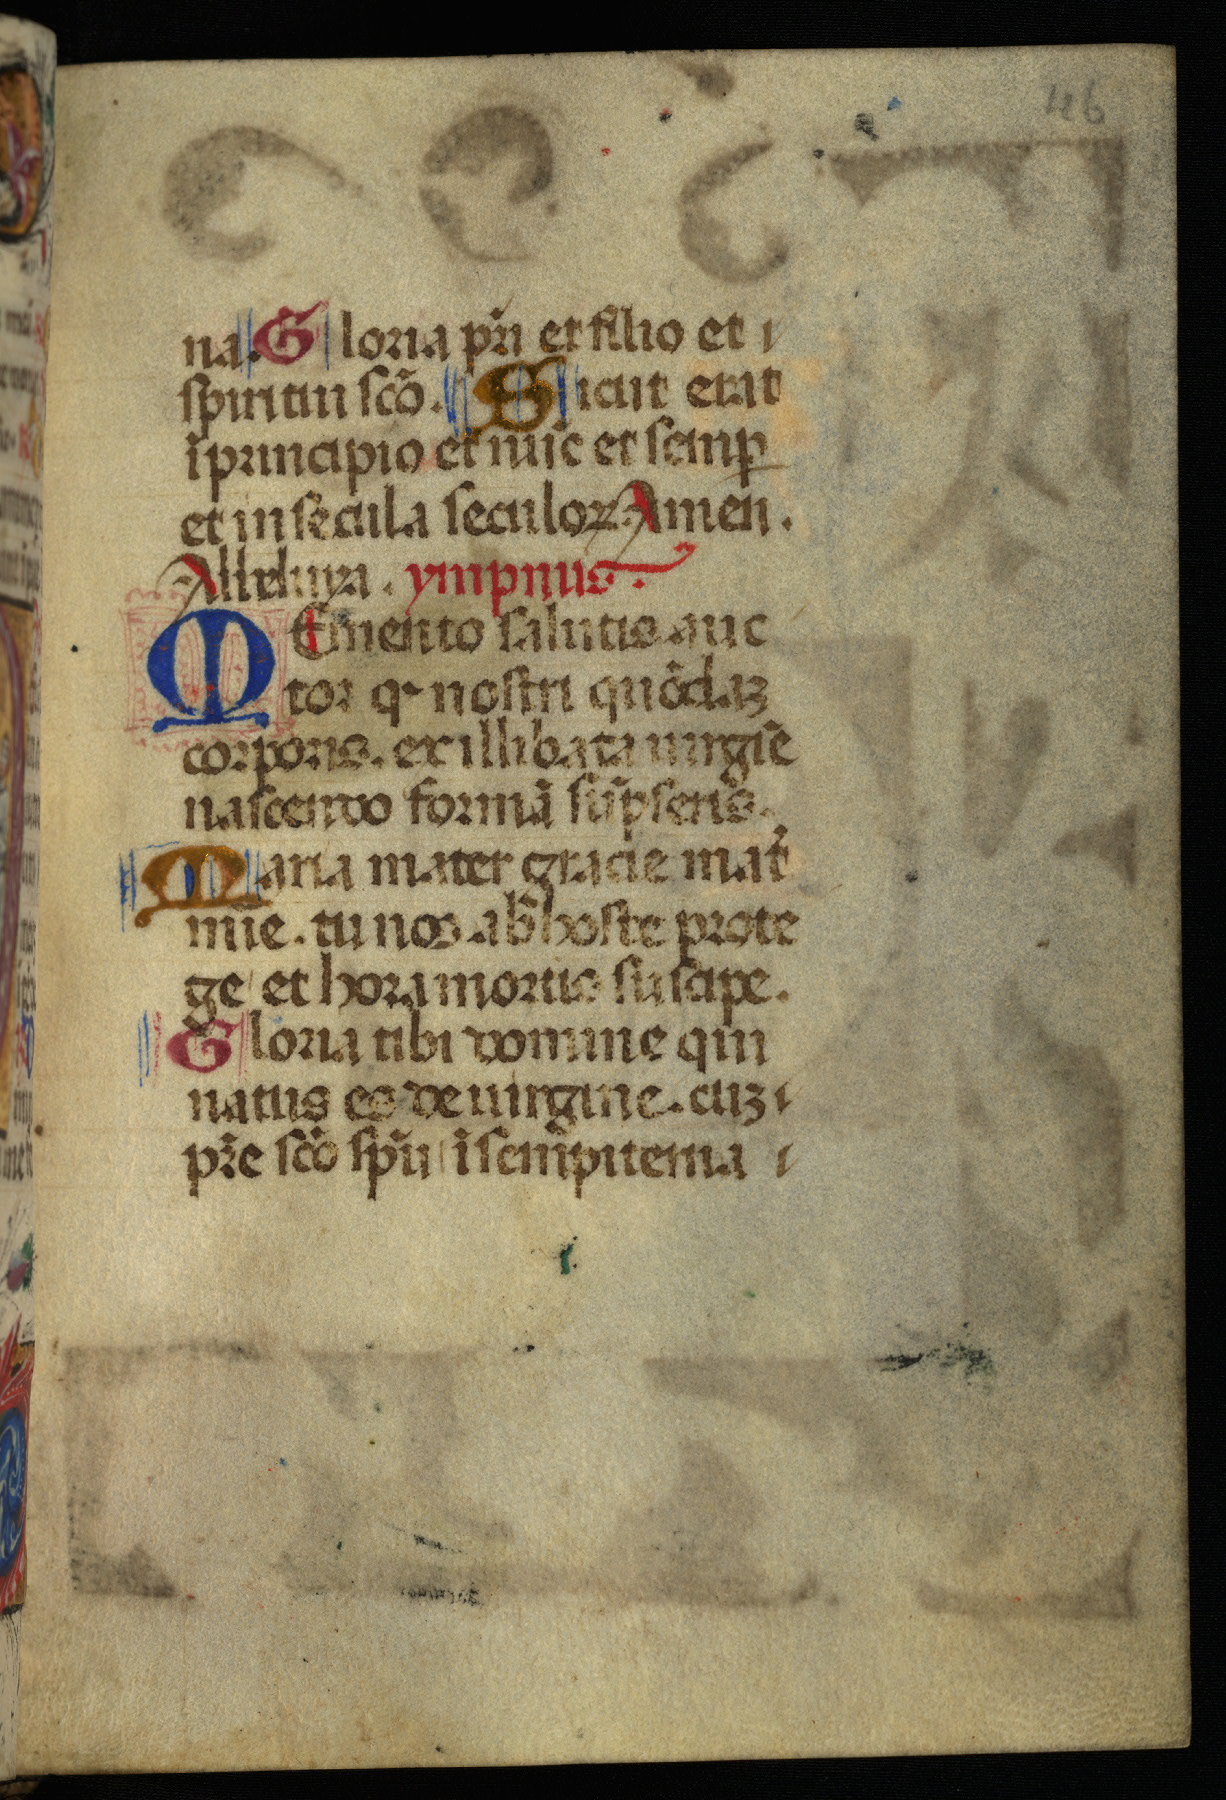 46
na. Gloria pr̃i et filio et
spiritui sc̃o. Sicut erat
ĩ principio et nũc et semp̲
et in secula seculoꝝ Amen.
Alleluya. ympnus.
MEmento salutis auc
tor qͥ nostri quõdaꝫ
corporis. ex illibata uirgĩe
nascendo formã sũpseris.
Maria mater gracie mat̃
mĩe. tu nos ab hoste prote
ge et hora mortis suscipe.
Gloria tibi domine qui
natus es de uirgine. cuꝫ
pr̃e sc̃o sp̃u ĩ sem̃piterna